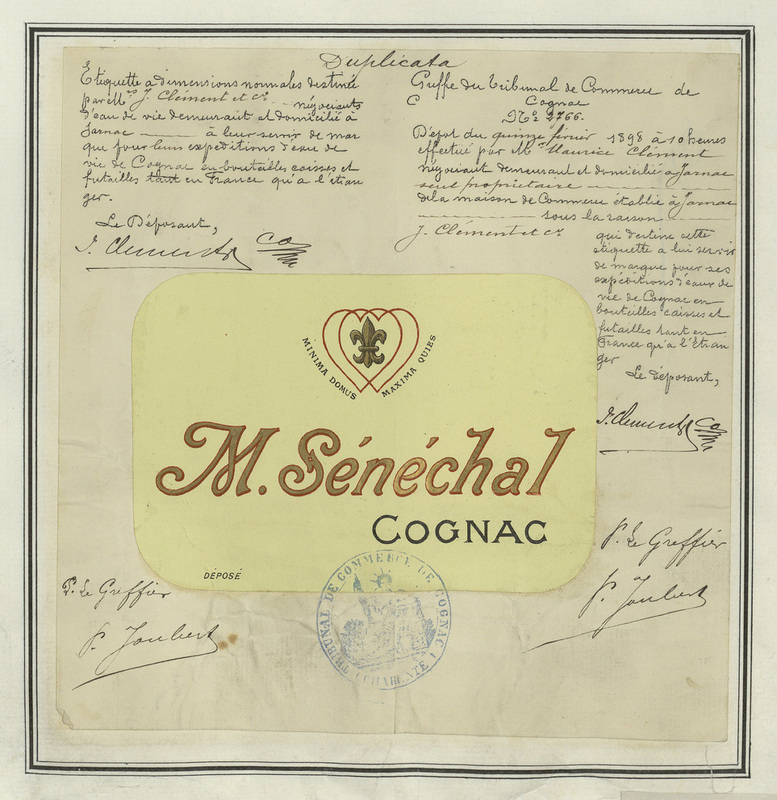 Duplicata
Etiquette a dimensions normales destinée
par MM.rs J. Clément et Cie négociants
d'eau de vie demeurant et domicilié à
Jarnac à leur servir de mar
que pour leurs expéditions d'eau de
vie de Cognac en bouteilles caisses et
futailles tant en France qu'a l'étran
ger.
Le Déposant,
J. Clément & Co
Greffe du Tribunal de Commerce de
Cognac
No 2766.
Dépot du quinze février 1898 à 10 heures
effectué par Mr Maurice Clément
négociant demeurant et domicilié à Jarnac
seul propriétaire
de la maison de Commerce établie à Jarnac
sous la raison
J. Clément et Cie
qui destine cette
étiquette a lui servir
de marque pour ses
expéditions d'eaux de
vie de Cognac en
bouteilles caisses et
futailles tant en
France qu'a l'Etran
ger
Le déposant,
J. Clément & Co
MINIMA DOMUS MAXIMA QUIES
M. Sénéchal
COGNAC
DÉPOSÉ
P. Le Greffier
P. Joubert
P. Le Greffier
P. Joubert
TRIBUNAL DE COMMERCE DE COGNAC
(CHARENTE)